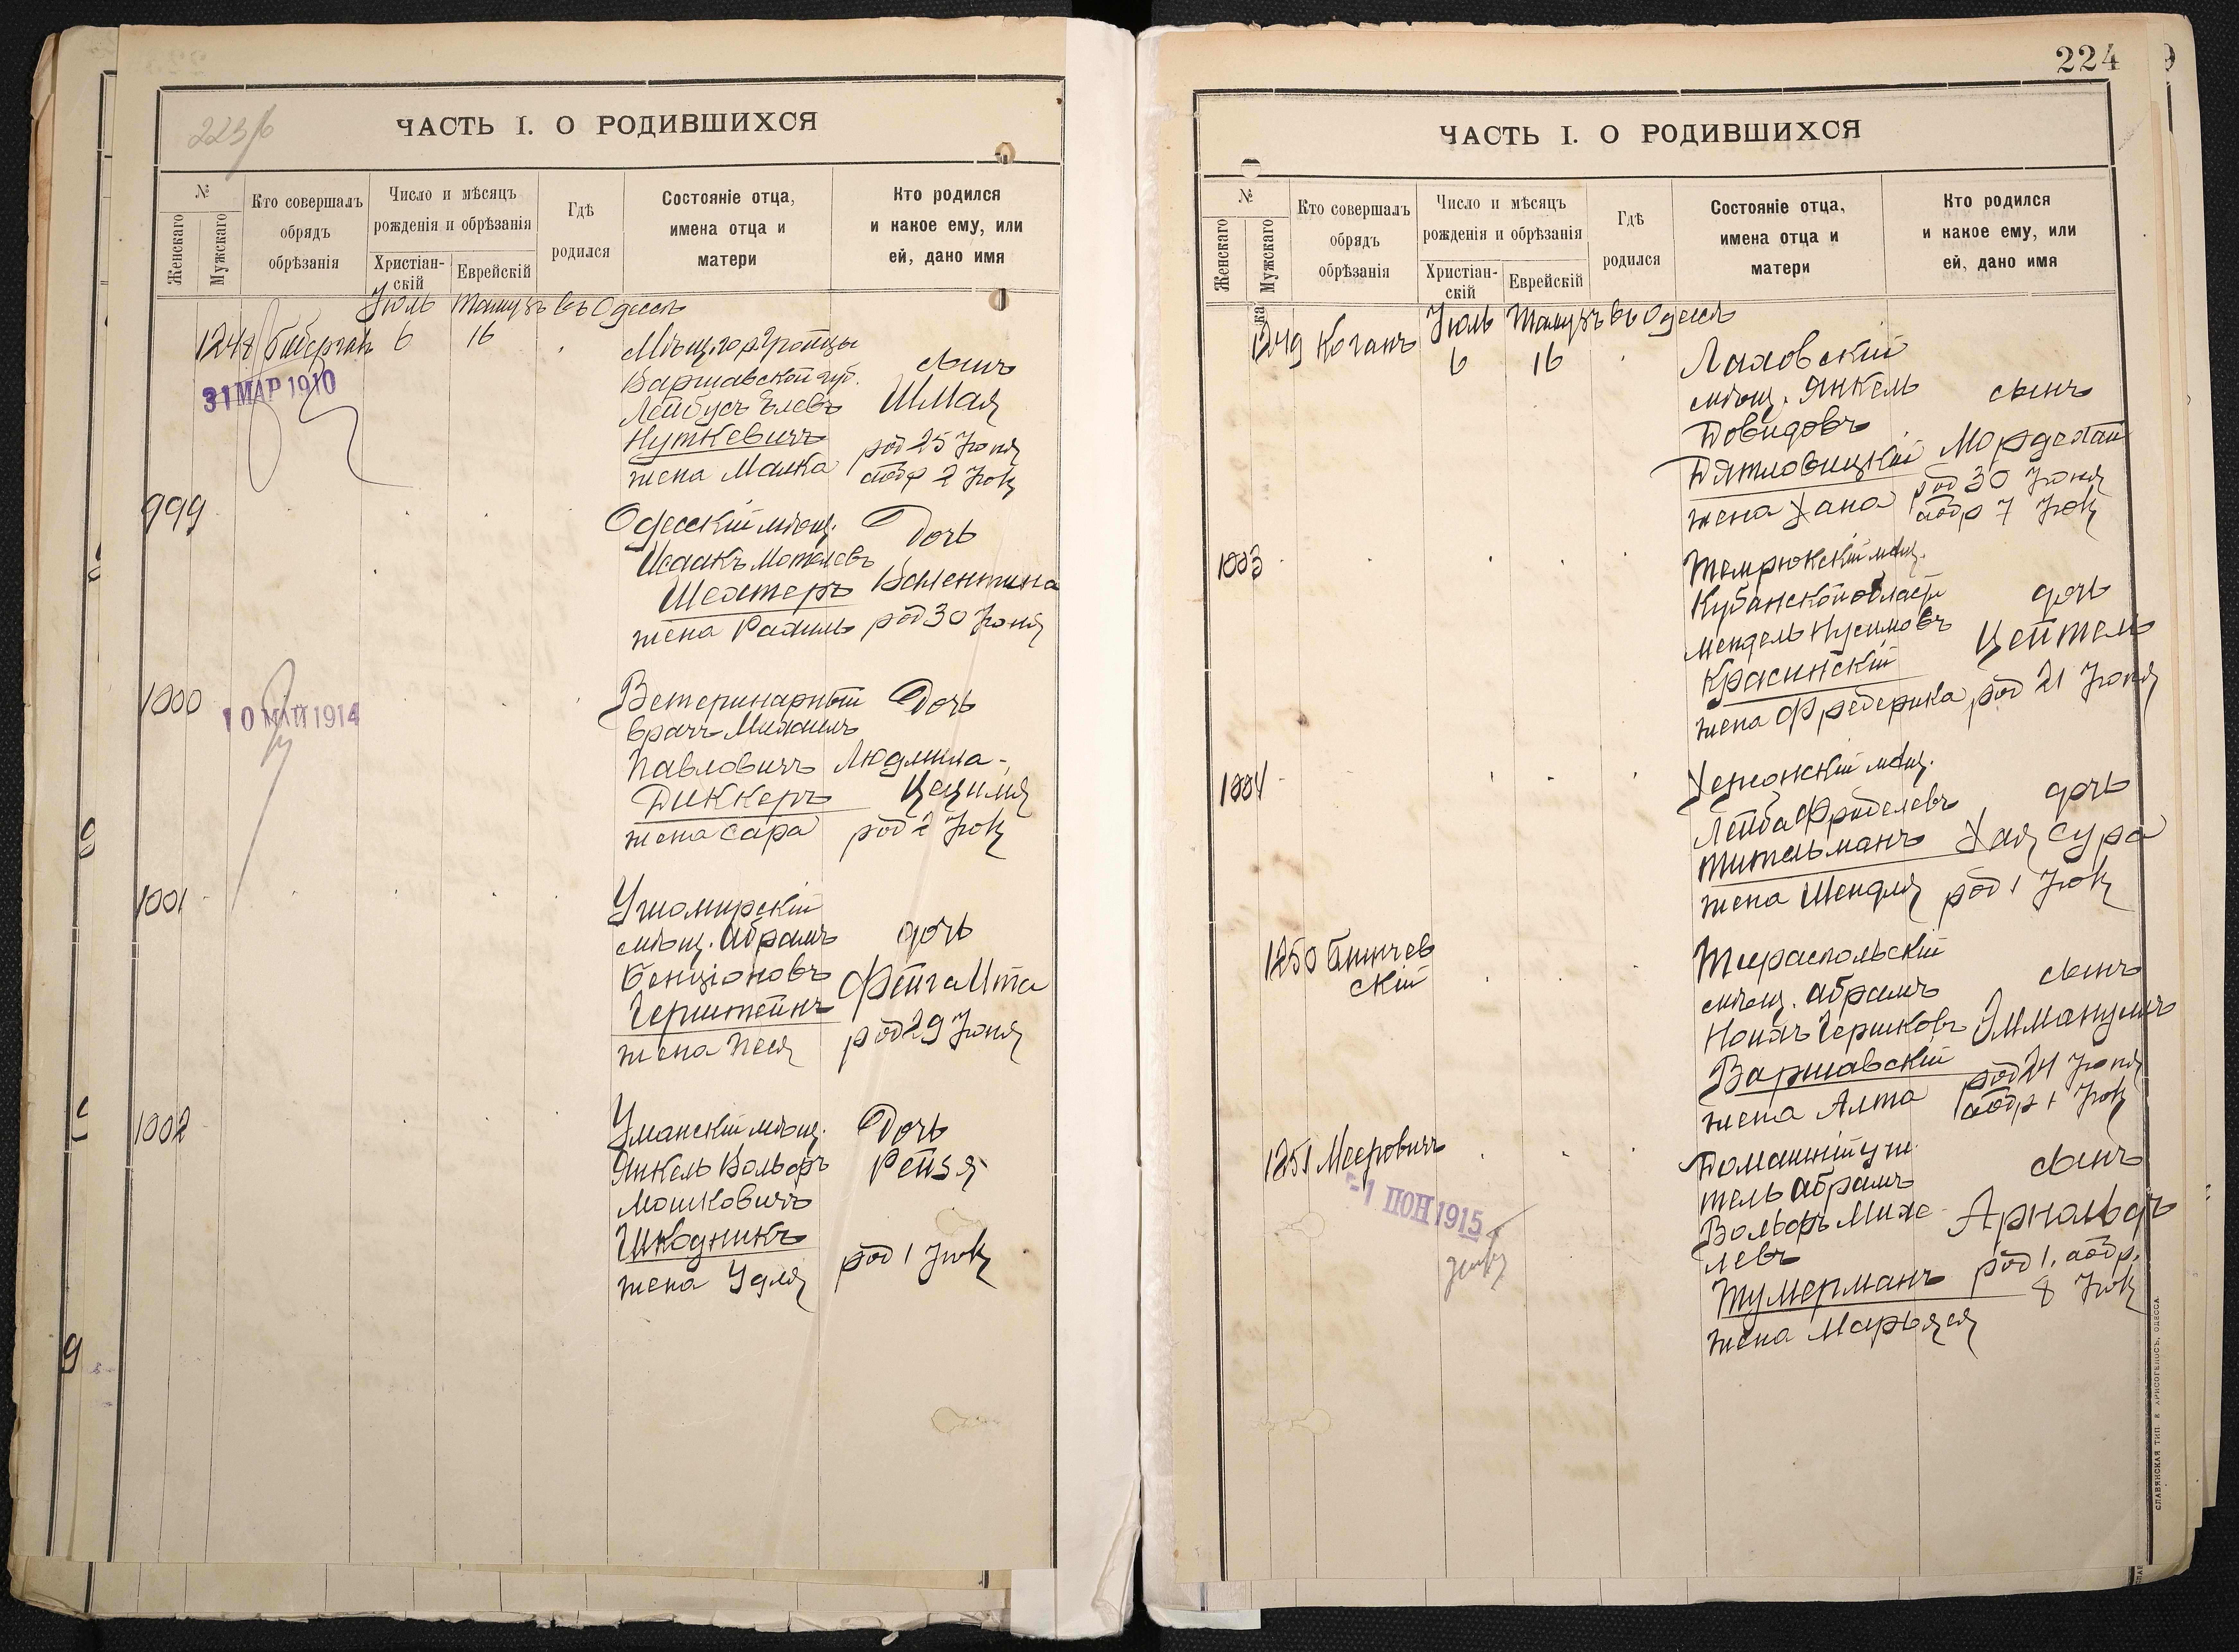 223/б
ЧАСТЬ I. О РОДИВШИХСЯ
№
Женскаго
Мужскаго
Кто совершалъ
обрядъ
обрѣзанія
Число и мѣсяцъ
рожденія и обрѣзанія
Христіан-
скій
Еврейскій
Гдѣ
родился
Состояніе отца,
имена отца и
матери
Кто родился
и какое ему, или
ей, дано имя
Іюль Тамузъ въ Одессѣ
1248 6 16
31 МАР 1910
Мѣщ. гор. Гройцы
Варшавской губ.
Лейбусъ Элевъ
Нуткевичъ
жена Малка
сынъ
Шмая
род 25 Іюня
аобр 2 Іюл
999
Одесскій мѣщ.
Исаакъ Мотелевъ
Шехтеръ
жена Рахиль
Дочь
Валентина
род 30 Іюня
1000
10 МАЙ 1914
Ветеринарный
врачъ Михаилъ
Павловичъ
Диккеръ
жена Сара
Дочь
Людмила-
Цецилія
род 2 Іюл
1001
Ушомирскій
мѣщ. Абрамъ
Бенціоновъ
Герштейнъ
жена Песя
дочь
Фейга Ита
род 29 Іюня
1002
Уманскій мѣщ.
Янкель Вольфъ
Мошковичъ
Шкодникъ
жена Удля
Дочь
Рейзя
род 1 Іюл
224
ЧАСТЬ I. О РОДИВШИХСЯ
№
Женскаго
Мужскаго
Кто совершалъ
обрядъ
обрѣзанія
Число и мѣсяцъ
рожденія и обрѣзанія
Христіан-
скій
Еврейскій
Гдѣ
родился
Состояніе отца,
имена отца и
матери
Кто родился
и какое ему, или
ей, дано имя
Іюль Тамузъ въ Одессѣ
1249 Коганъ 6 16
Ляховскій
мѣщ. Янкель
Довидовъ
Дятловицкій
жена Хана
сынъ
Мордехай
род 30 Іюня
аобр 7 Іюл
1003
Темрюкскій мѣщ.
Кубанской области
Мендель Нусимовъ
Красинскій
жена Фредерика
дочь
Цейтель
род 21 Іюня
1004
Херсонскій мѣщ.
Лейба Фроделевъ
Тительманъ
жена Шендля
дочь
Хая Сура
род 1 Іюл
1250 Бончев
скій
Тираспольскій
мѣщ. Абрамъ
Гершковъ
Варшавскій
жена Алта
сынъ
Эммануилъ
род 24 Іюня
аобр 1 Іюл
1251 Мееровичъ
-1 ІЮН 1915
Домашній учи
тель Абрамъ
Вольфъ Михе
левъ
Тумерманъ
жена Марьяся
сынъ
Арнольдъ
род 1. аобр.
8 Іюл
СЛАВЯНСКАЯ ТИП. Е. ХРИСОГЕЛОСЪ, ОДЕССА.